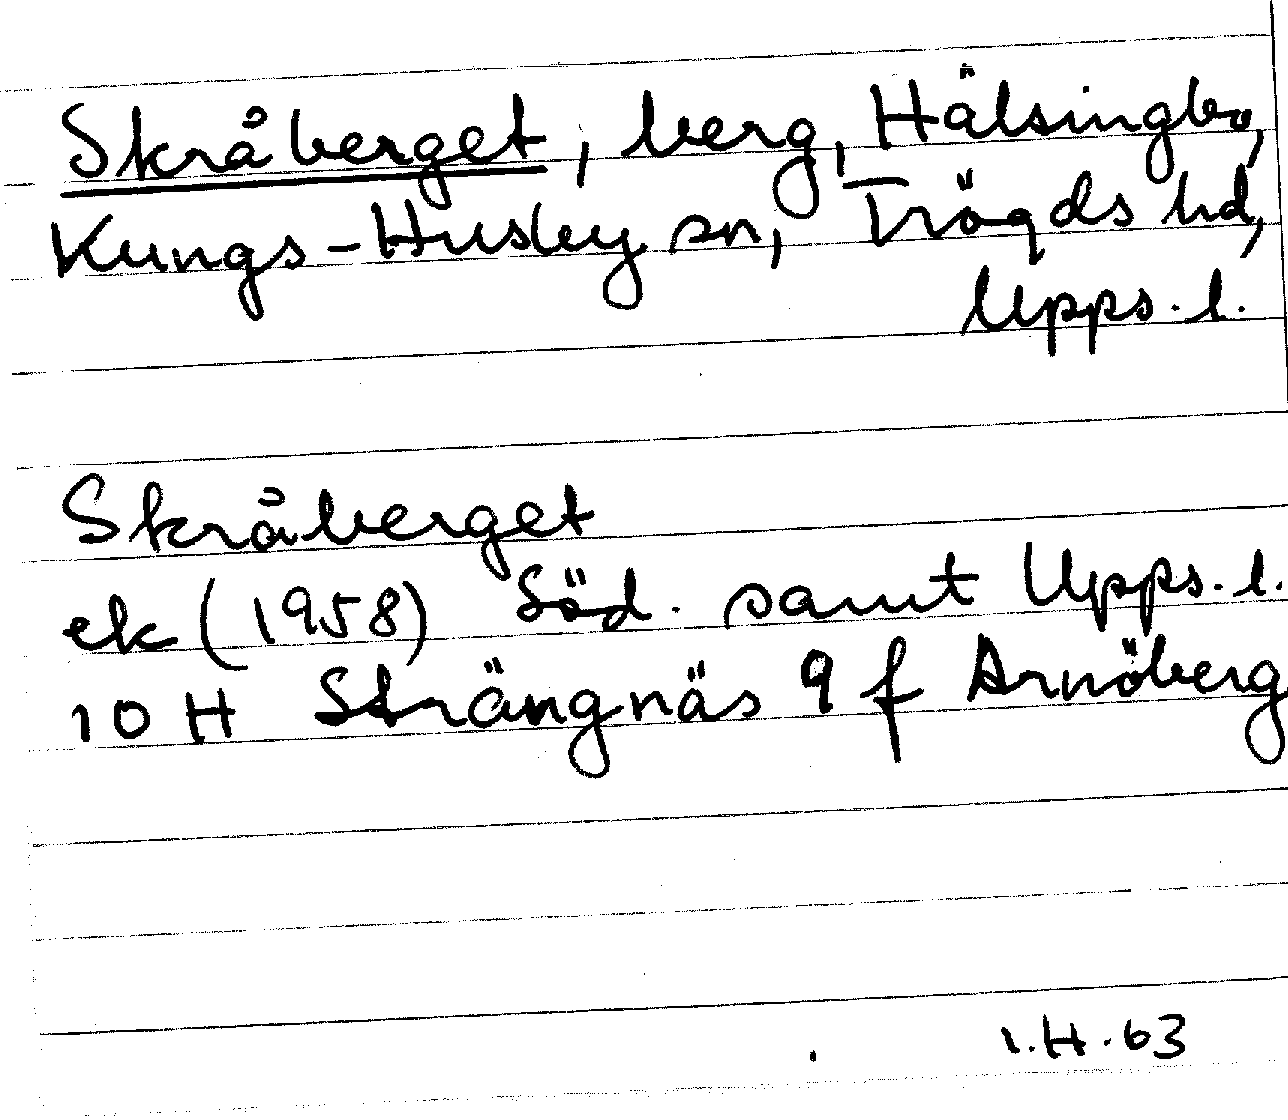 Skråberget, berg, Hälsingbo,
Kungs-Husby sn, Trögds hd,
Upps. l.
Skråberget
ek (1958) Söd. samt Upps. l.
10 H Strängnäs 9 f Arnöberg
I.H. 63